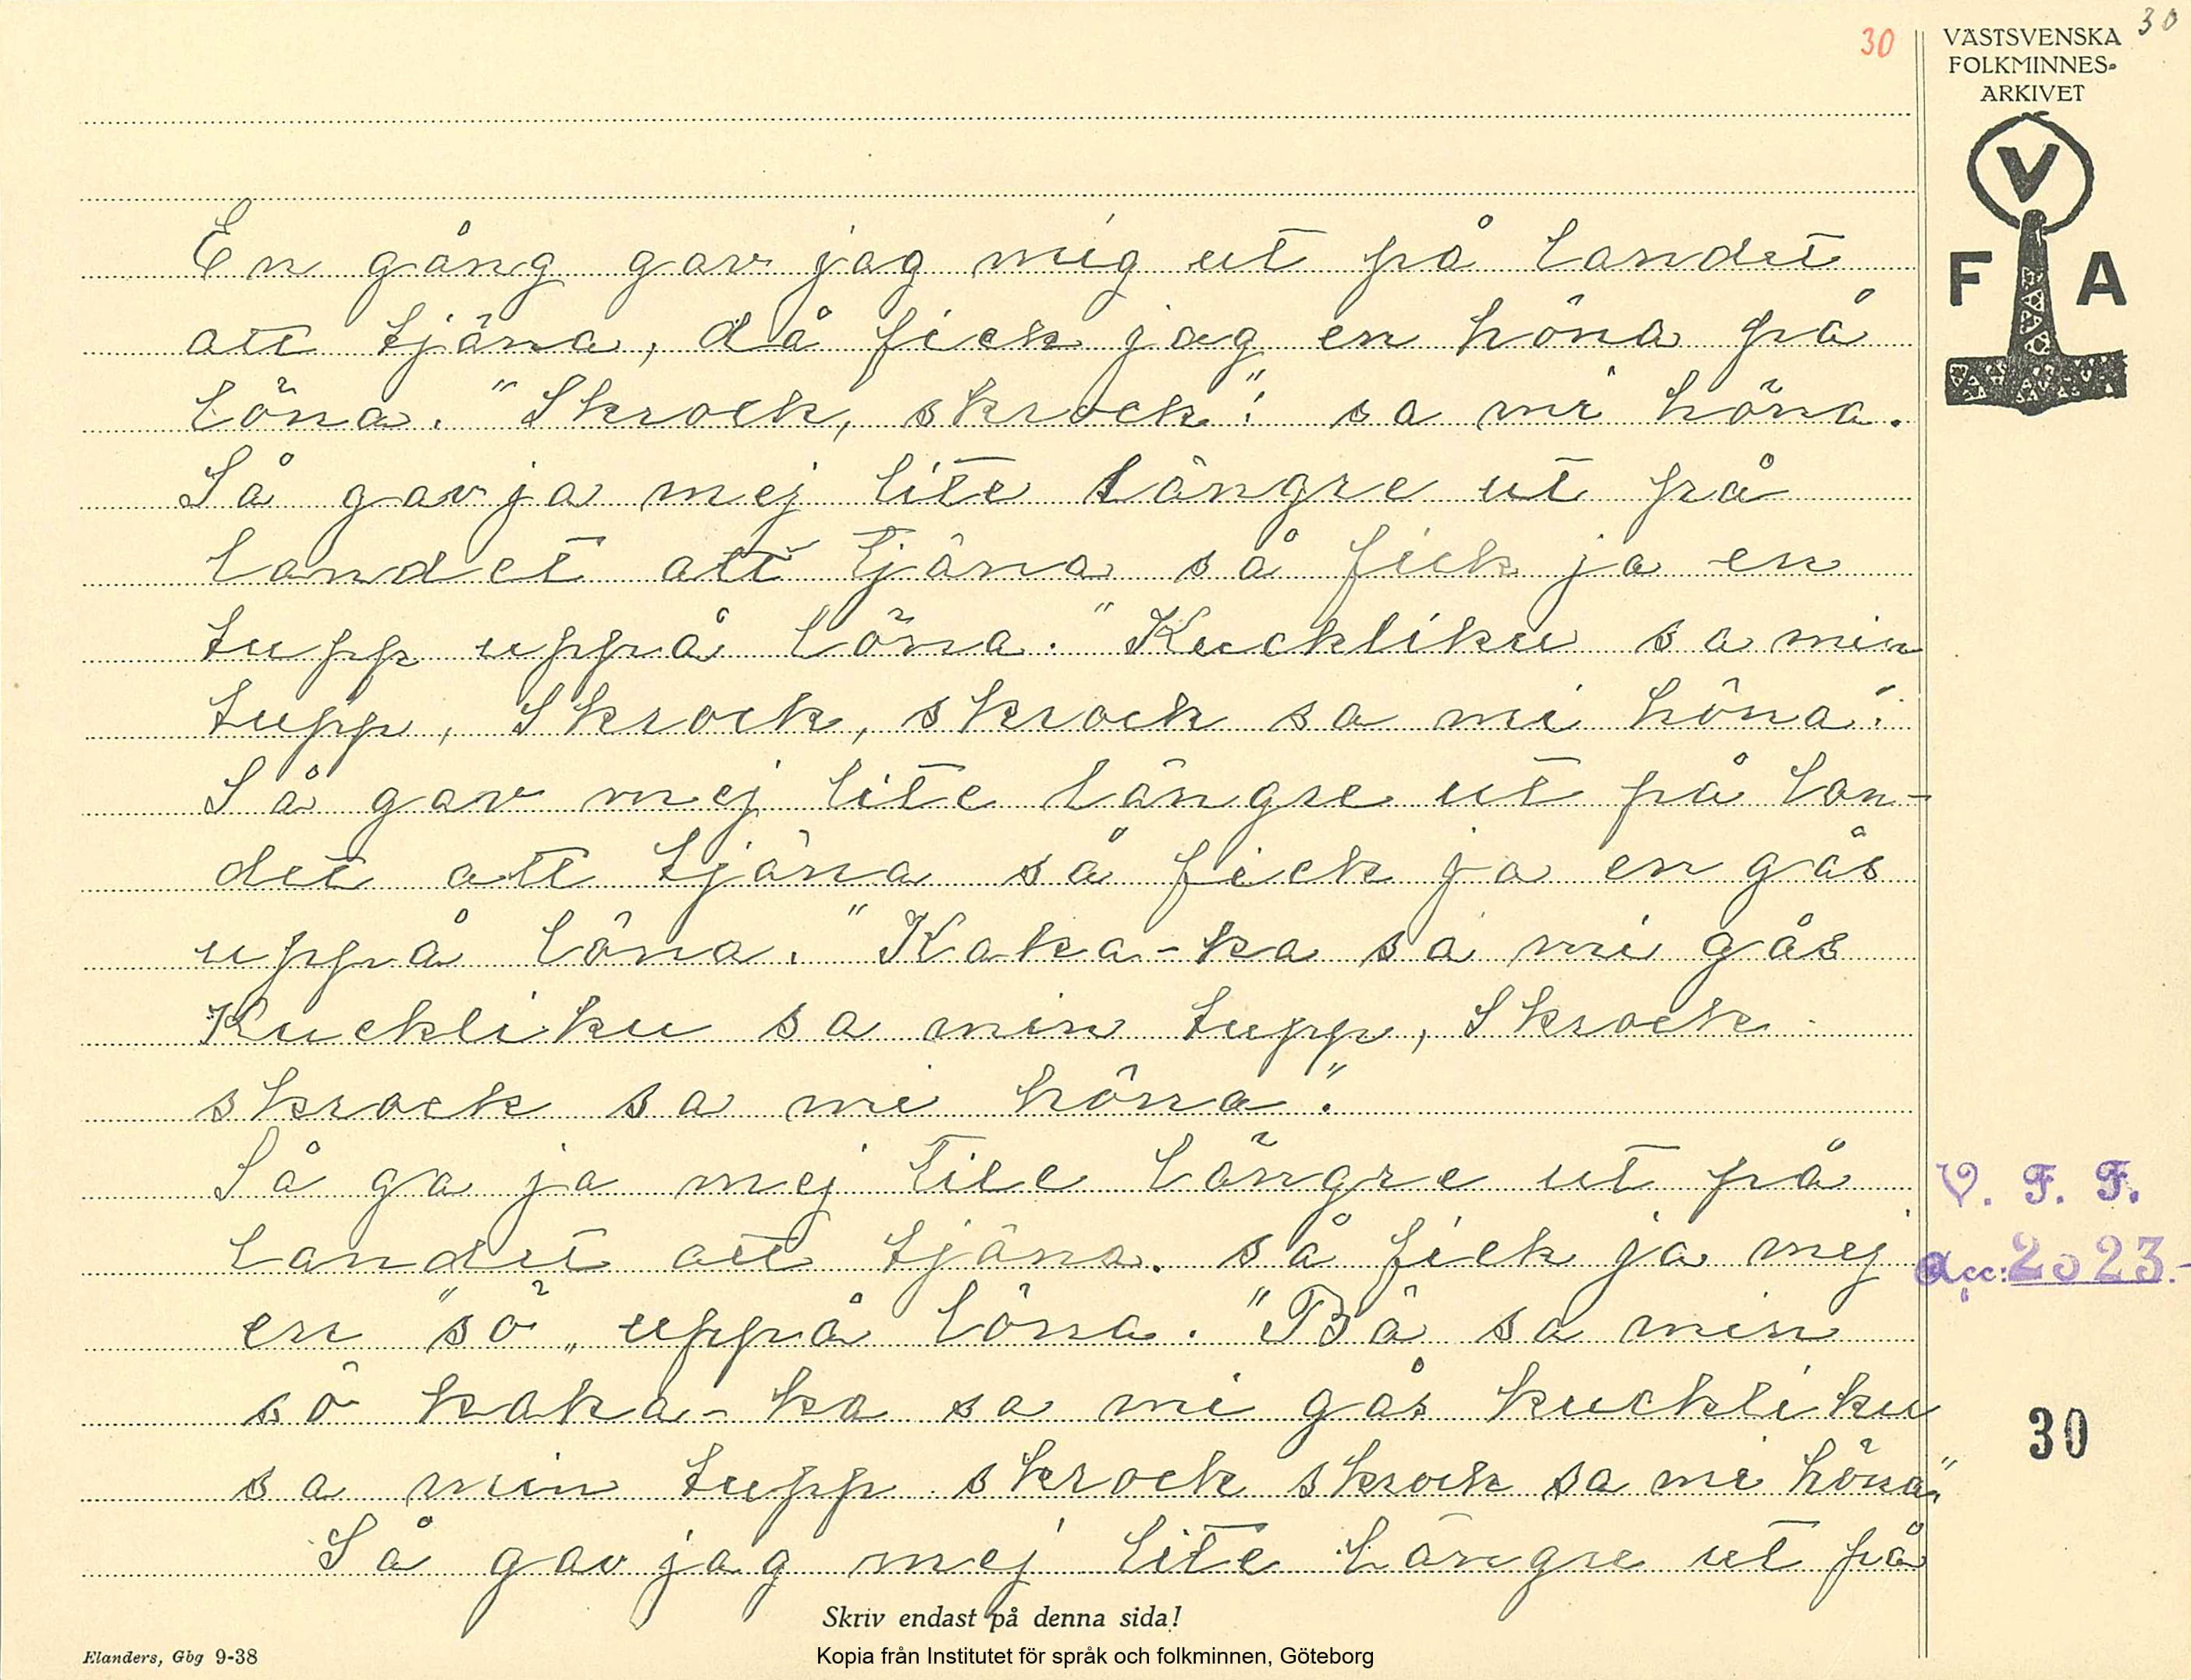 30
30
VÄSTSVENSKA
FOLKMINNES-
ARKIVET
V
F A
En gång gav jag mig ut på landet
att tjäna, då fick jag en höna på
löna. "Skrock, skrock": sa mi höna.
Så gav ja mej lite längre ut på
landet att tjäna så fick ja en
tupp uppå löna. "Kuckliku sa min
tupp, Skrock, skrock sa mi höna".
Så gav mej lite längre ut på lan-
det att tjäna så fick ja en gås
uppå löna. "Kaka-ka sa mi gås
Kuckliku sa min tupp, Skrock
skrock sa mi höna".
Så ga ja mej lite längre ut på
landet att tjäna. så fick ja mej
en "sö" uppå löna. "Bä sa min
sö kaka-ka sa mi gås kuckliku
sa min tupp skrock skrock sa mi höna".
Så gav jag mej lite längre ut på
V. F. F.
Acc: 2023.-
30
Skriv endast på denna sida!
Elanders, Gbg 9-38
Kopia från Institutet för språk och folkminnen, Göteborg